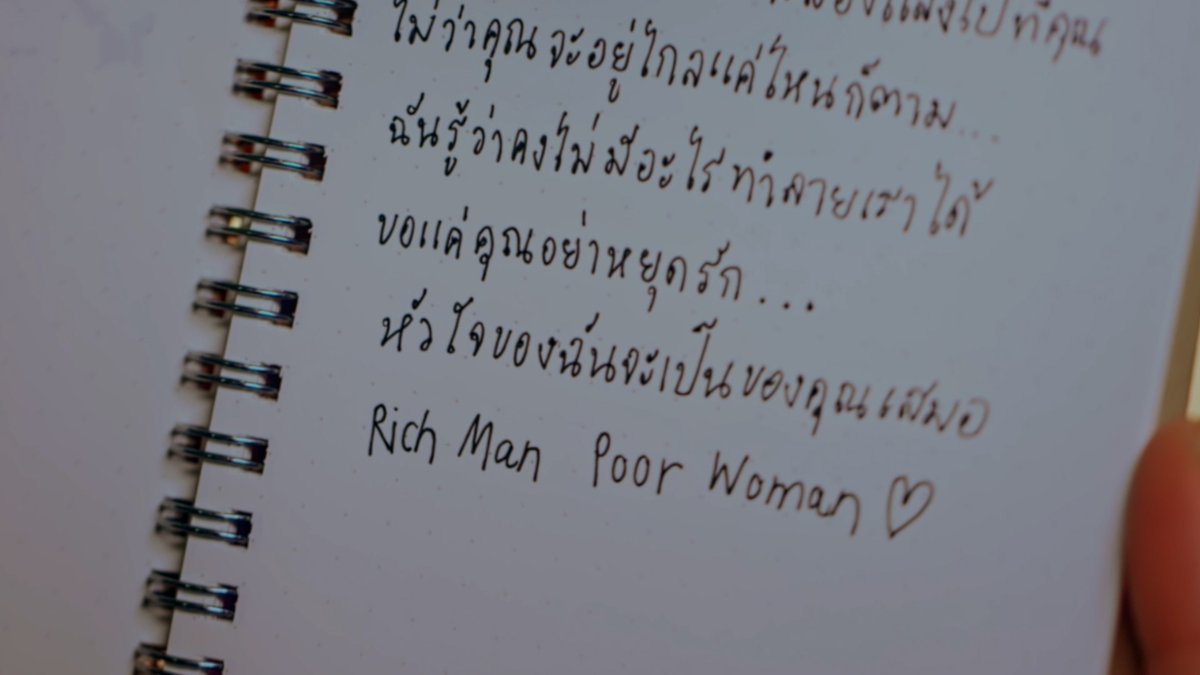 ไปที่คุณ
ไม่ว่าคุณจะอยู่ไกลแค่ไหนก็ตาม...
ฉันรู้ว่าคงไม่มีอะไรทำลายเราได้
ขอแค่คุณอย่าหยุดรัก...
หัวใจของฉันจะเป็นของคุณเสมอ
Rich Man Poor Woman ♡